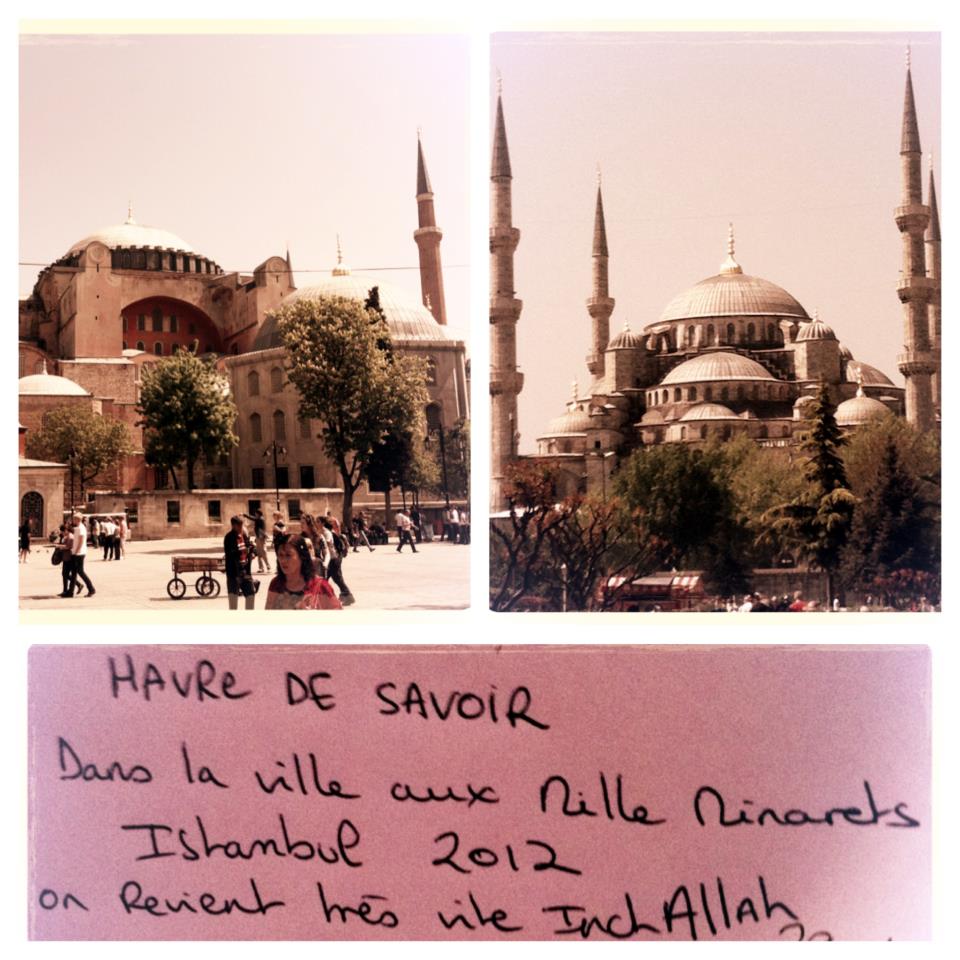 HAVRE DE SAVOIR
Dans la ville aux Mille Minarets
Istambul 2012
on Revient très vite InchAllah